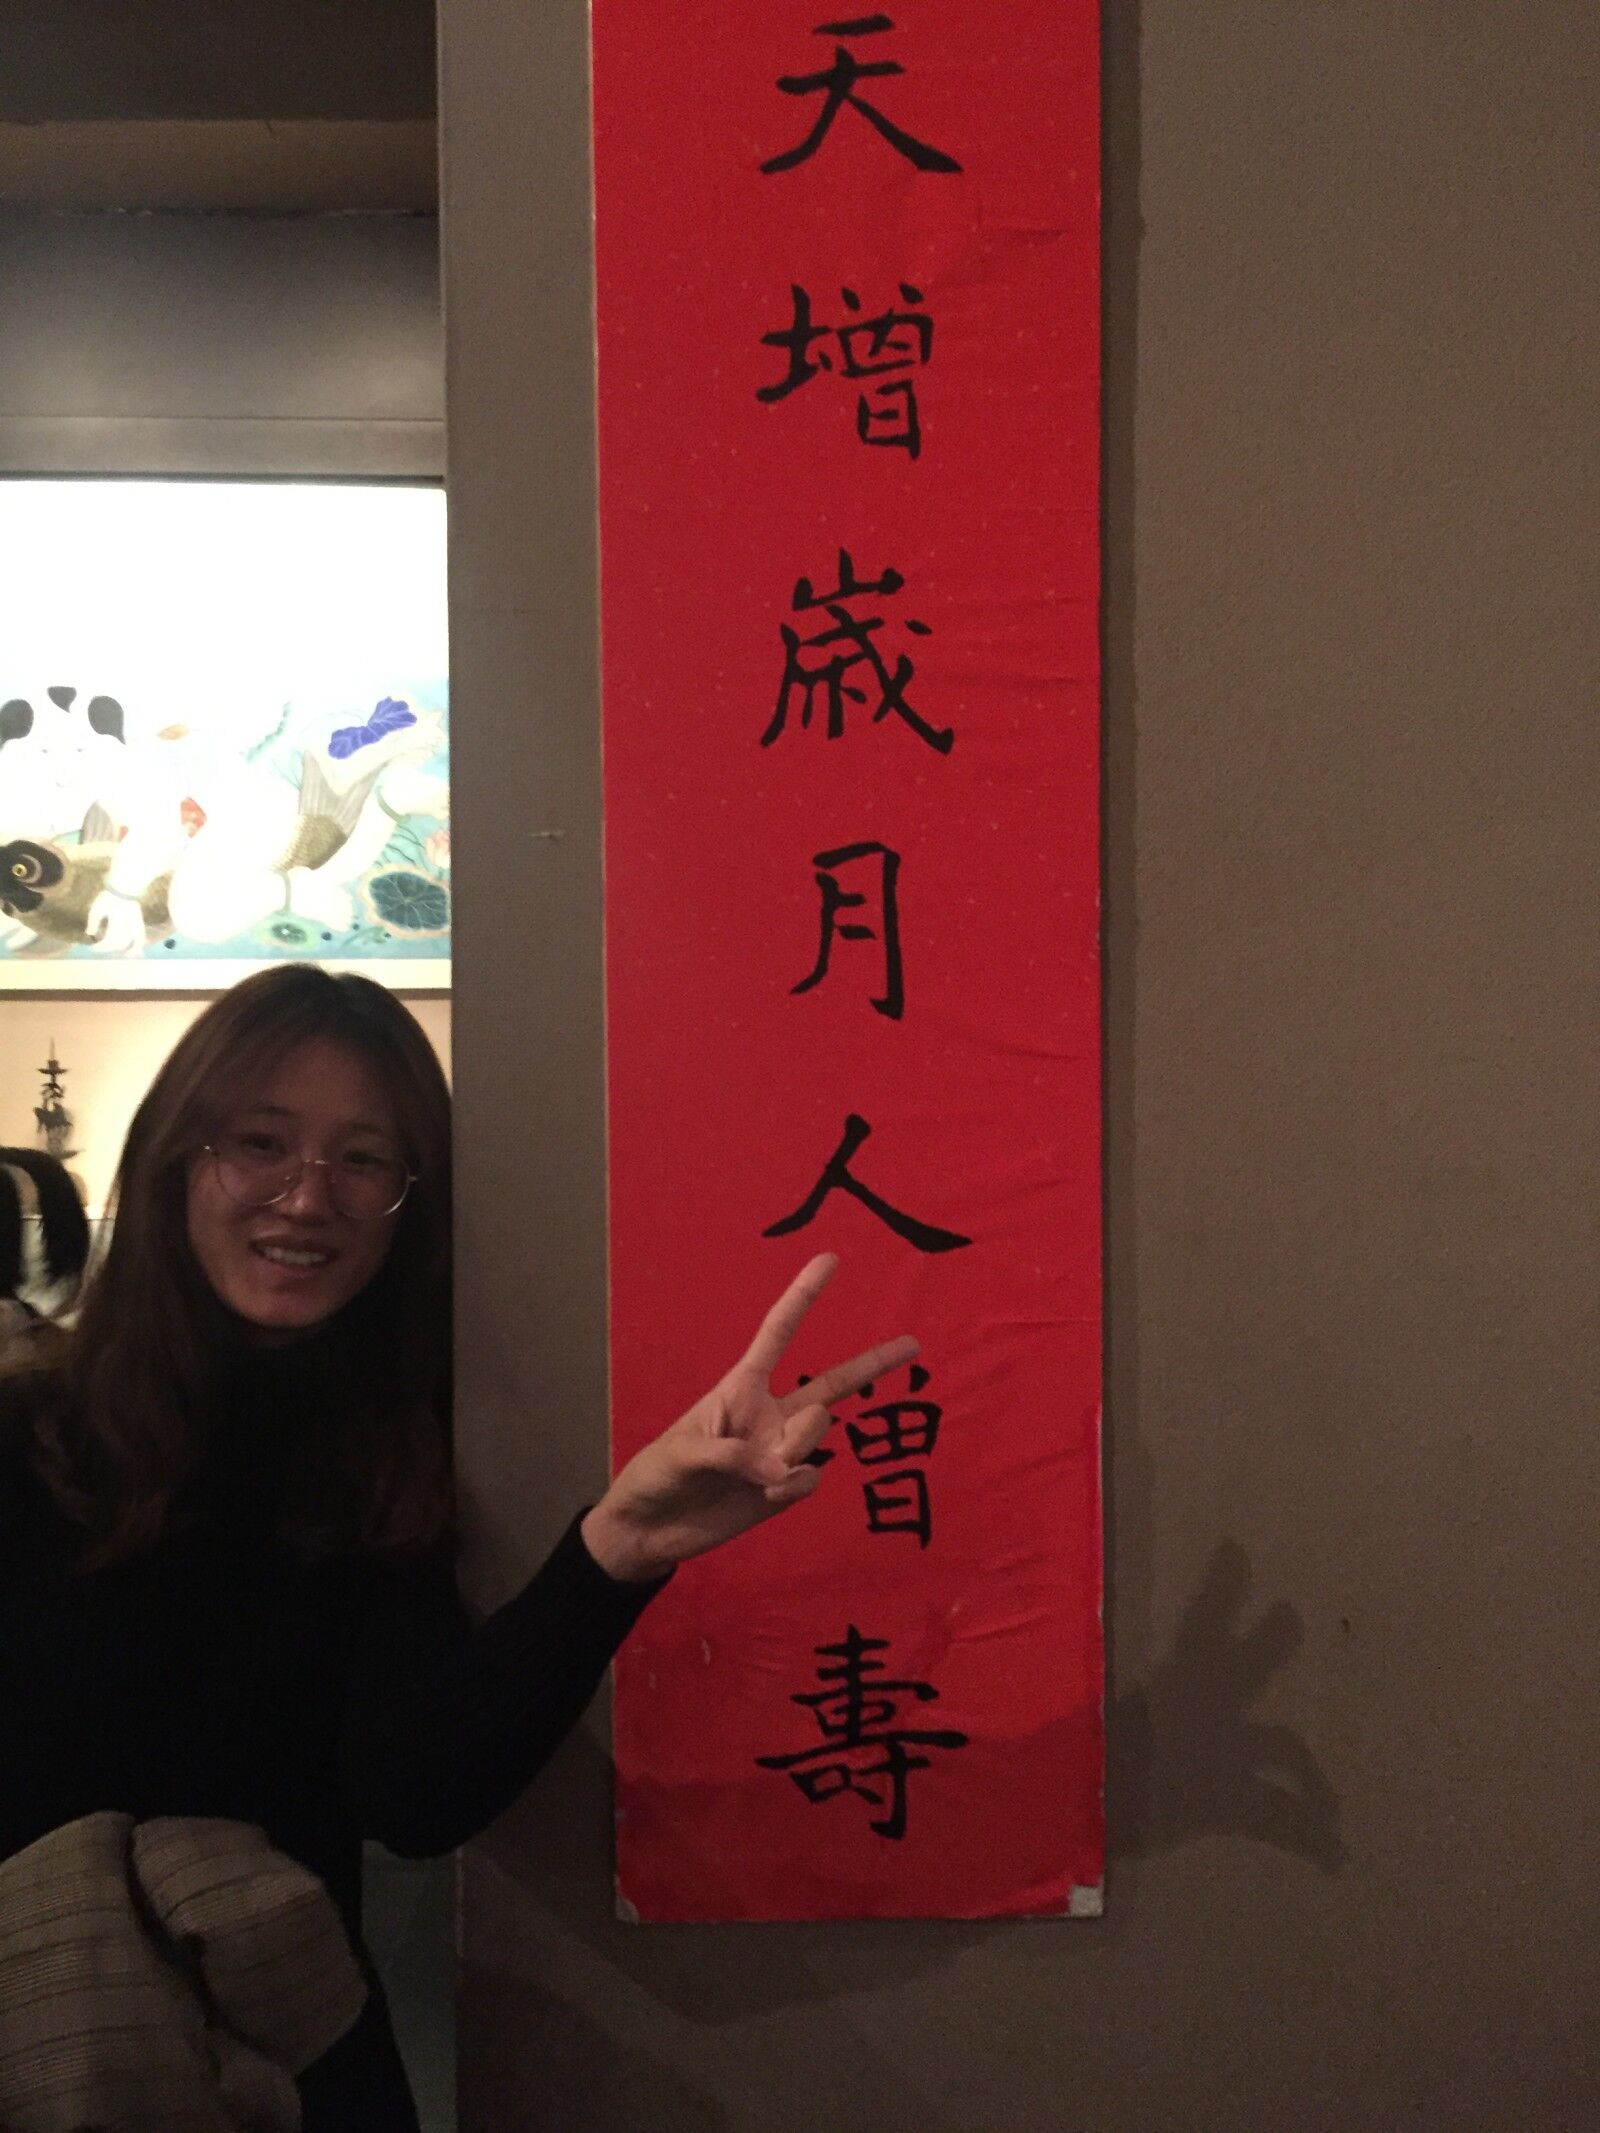 天增歲月人增壽